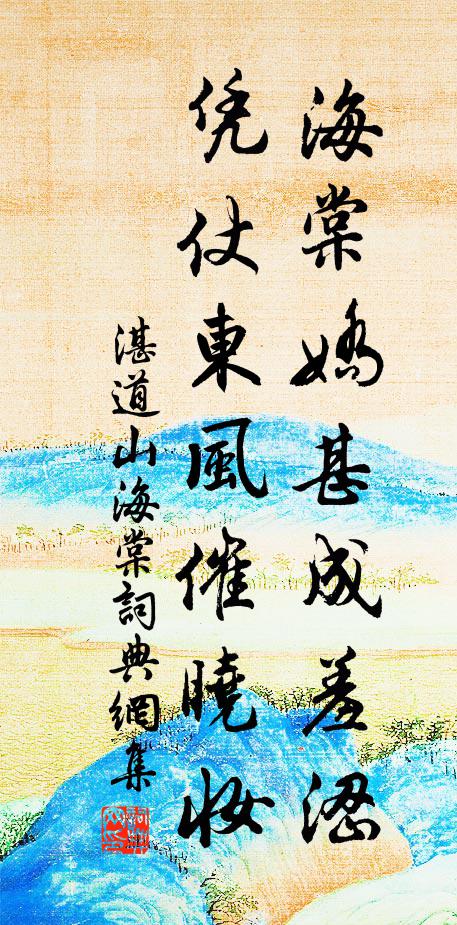 海棠嬌甚成羞澀
凭仗東風催曉妝
湛道山海棠詞典網集